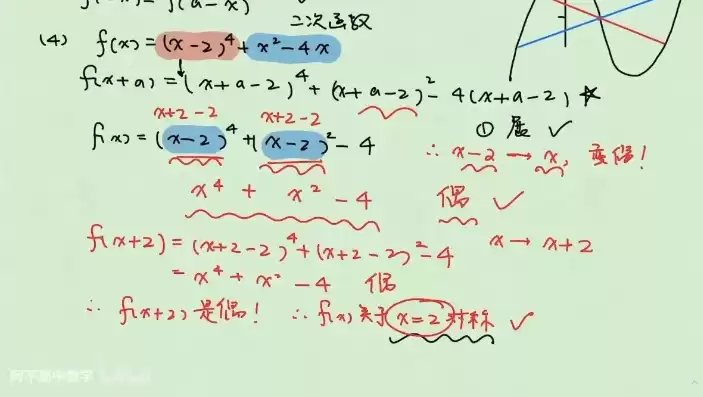 f(a-x)
二次函数
(4) f(x) = (x-2)⁴ + x² - 4x
f(x+a) = (x+a-2)⁴ + (x+a-2)² - 4(x+a-2)
x+2-2 x+2-2
① 展 ✓
f(x) = (x-2)⁴ + (x-2)² - 4
∴ x-2 → x, 变偶!
x⁴ + x² - 4 偶 ✓
f(x+2) = (x+2-2)⁴ + (x+2-2)² - 4 x → x+2
= x⁴ + x² - 4 偶
∴ f(x+2) 是偶! ∴ f(x) 关于 x=2 对称 ✓